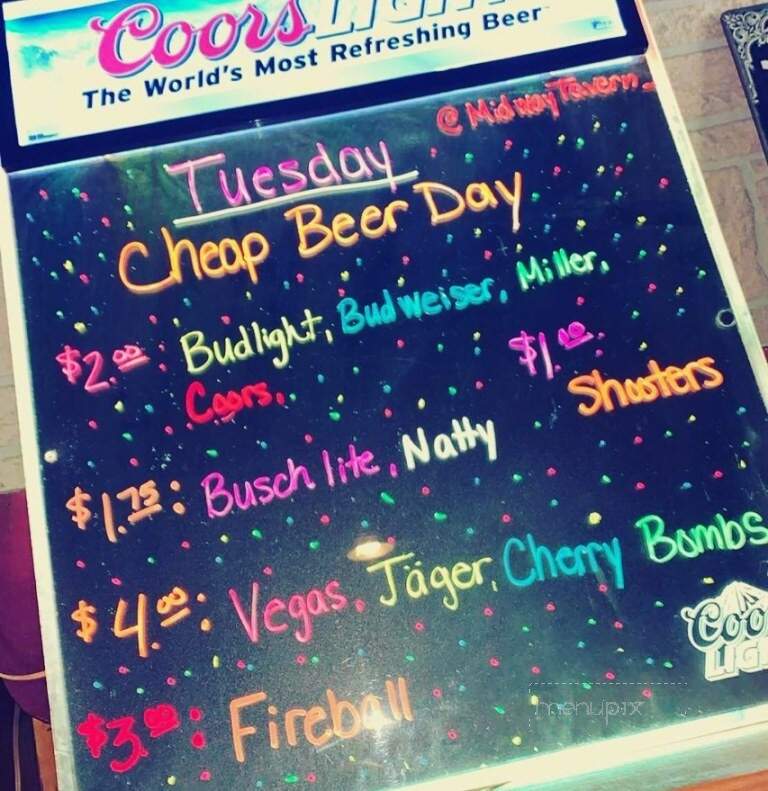 Coors LIGHT
The World's Most Refreshing Beer
@ Midway Tavern
Tuesday
Cheap Beer Day
$2.00: Budlight, Budweiser, Miller,
Coors,
$1.00
Shooters
$1.75: Busch lite, Natty
$4.00: Vegas, Jäger, Cherry Bombs
$3.00: Fireball
Coo
LIG
menupix